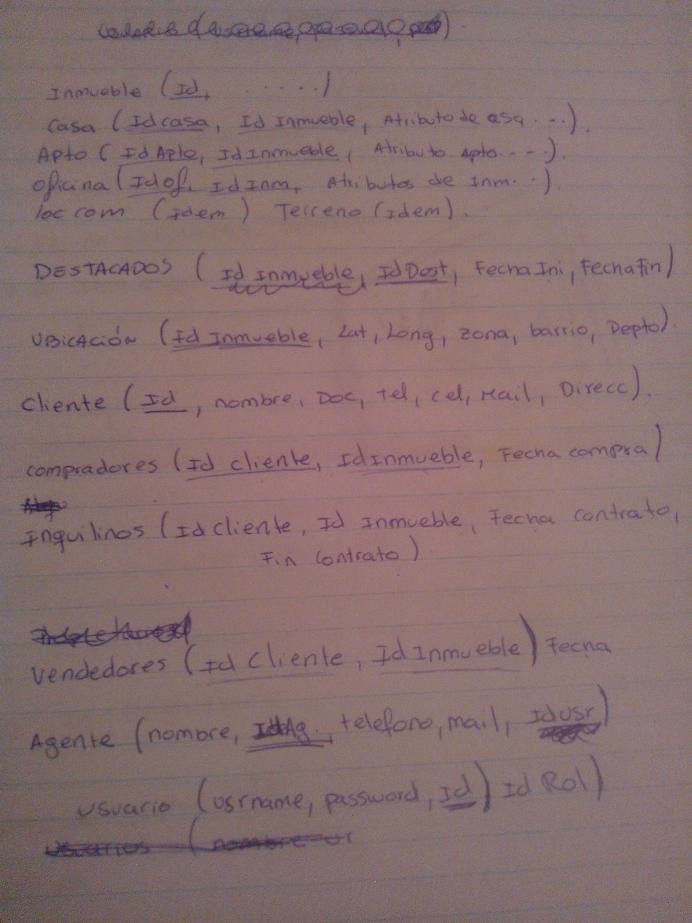 Inmueble (Id, .....)
Casa (Idcasa, Id Inmueble, Atributo de casa ...).
Apto (IdApto, IdInmueble, Atributo Apto....).
Oficina (Idof, IdInm, Atributos de Inm..).
loc com (Idem) Terreno (Idem).
DESTACADOS (Id Inmueble, IdDest, FechaIni, FechaFin)
UBICACIÓN (Id Inmueble, Lat, Long, zona, barrio, Depto).
Cliente (Id, nombre, Doc, tel, cel, Mail, Direcc).
compradores (Id cliente, IdInmueble, Fecha compra)
Inquilinos (IdCliente, Id Inmueble, Fecha contrato,
Fin Contrato)
Vendedores (Id Cliente, Id Inmueble) Fecha
Agente (nombre, IdAg, telefono, mail, Idusr)
usuario (usrname, password, Id) Id Rol)
usuarios (nombre-